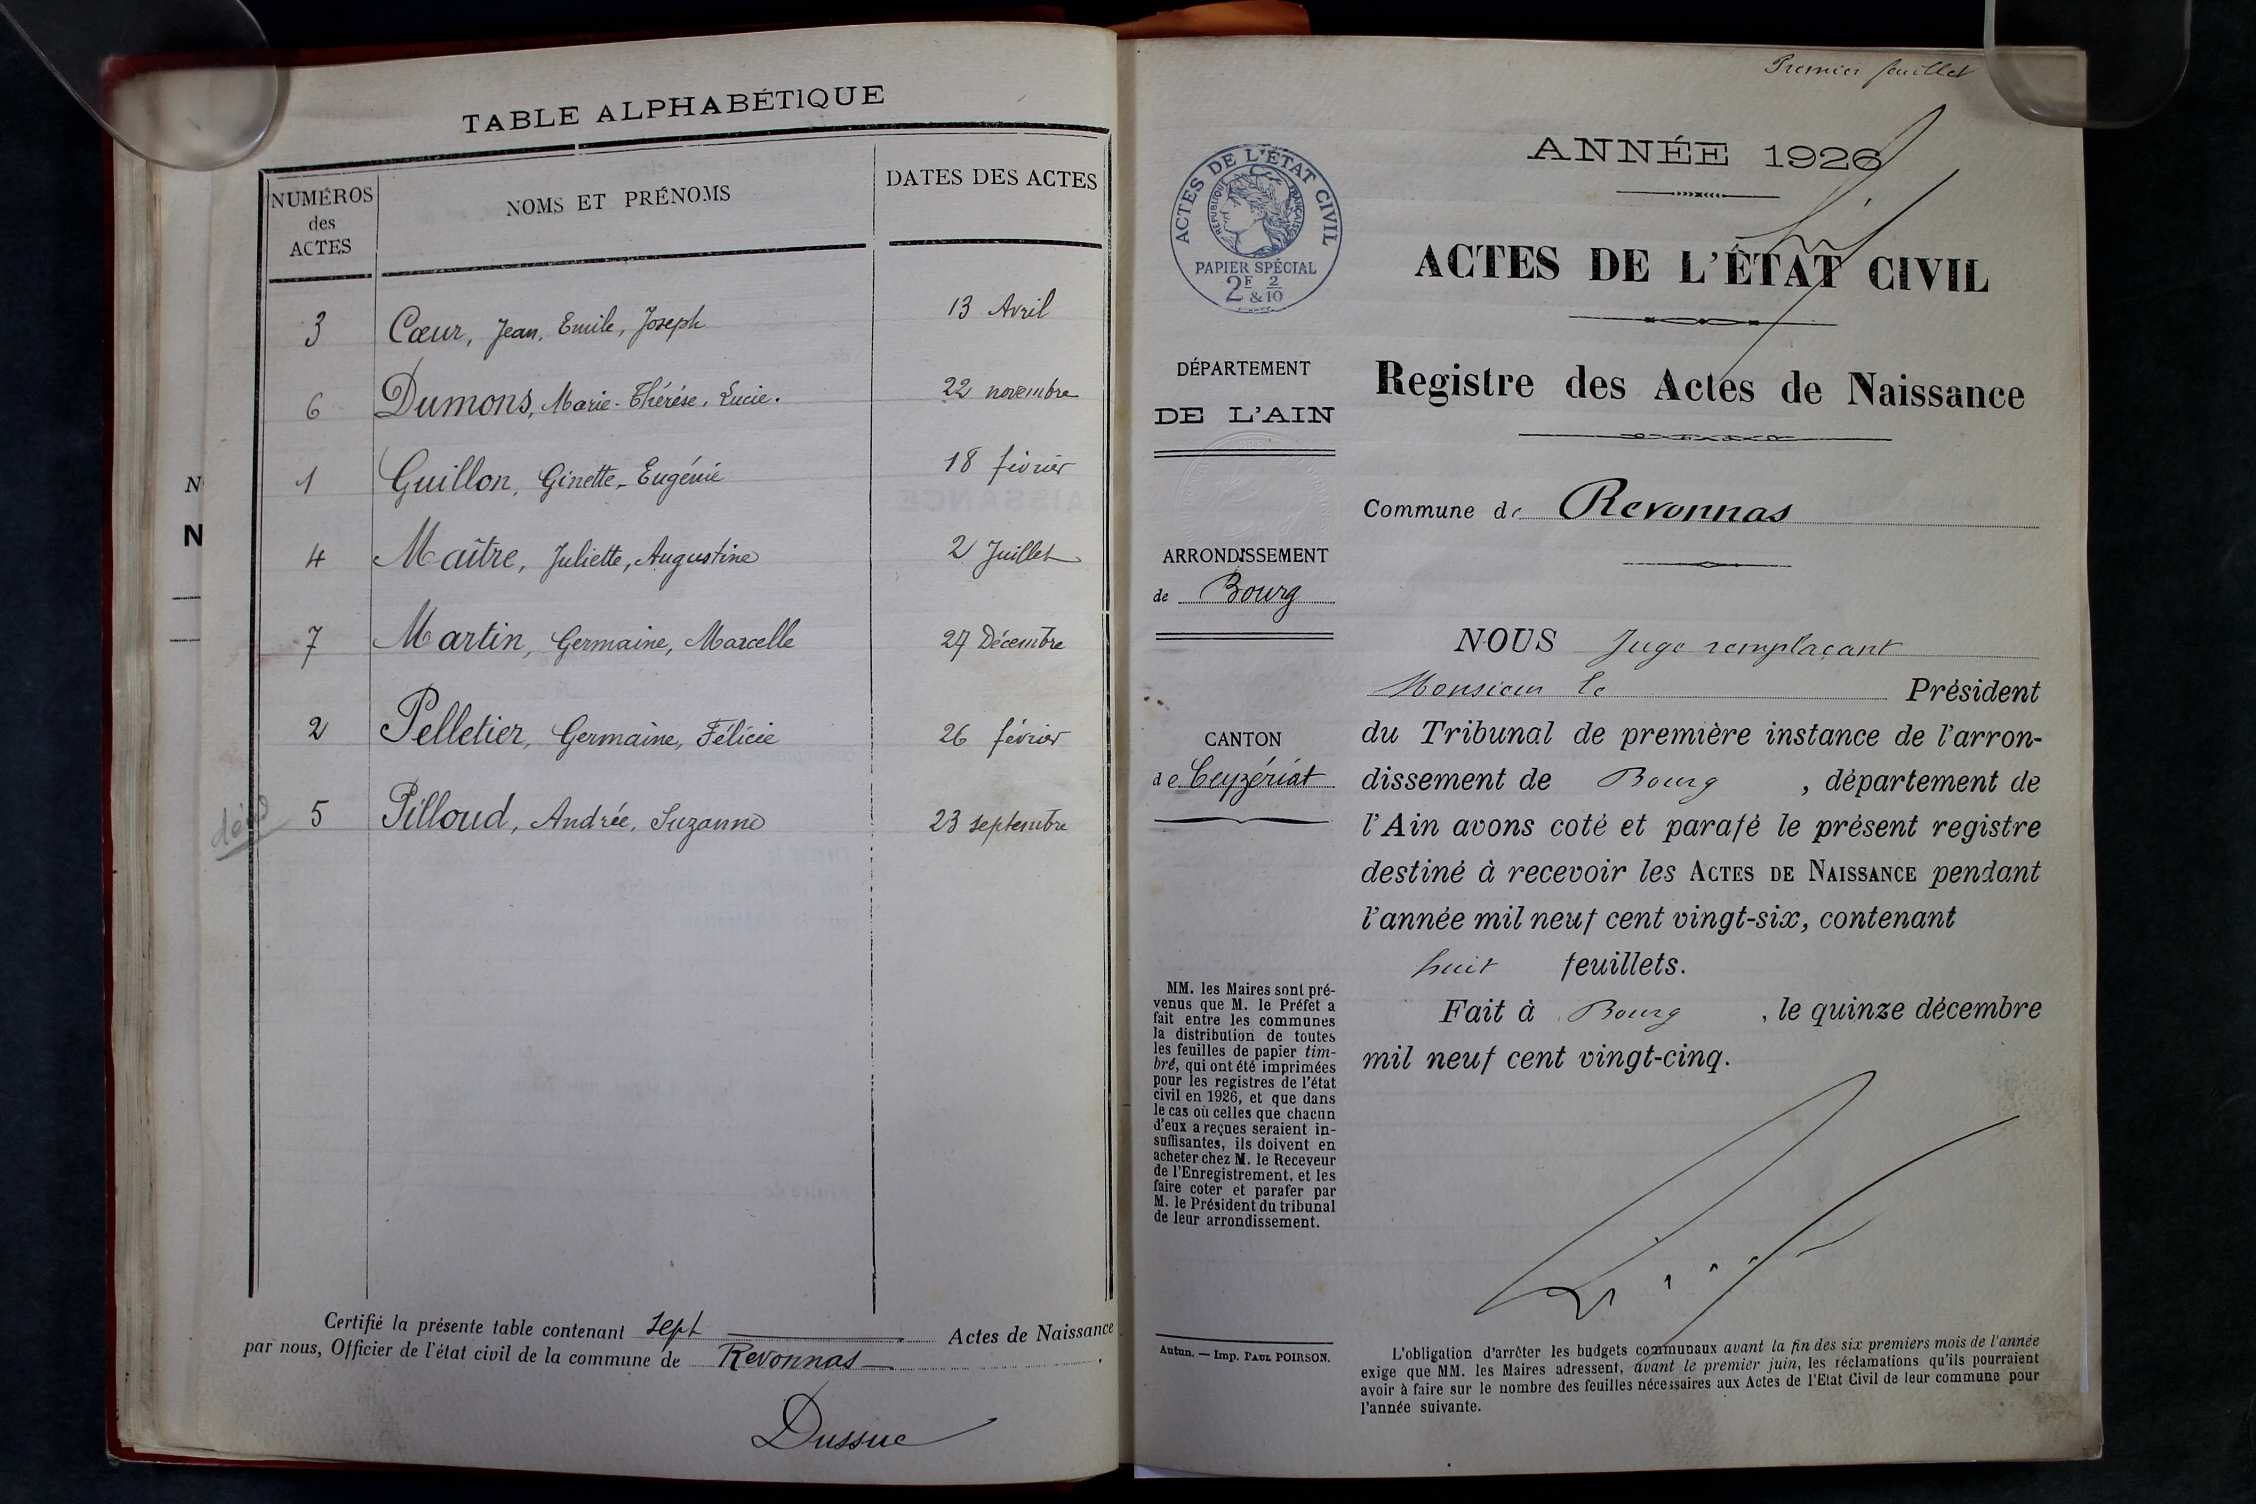 TABLE ALPHABÉTIQUE
NUMÉROS
des
ACTES
NOMS ET PRÉNOMS
DATES DES ACTES
3 Cœur, Jean, Emile, Joseph 13 Avril
6 Dumons, Marie-Thérèse, Lucie. 22 novembre
1 Guillon, Ginette, Eugénie 18 février
4 Maître, Juliette, Augustine 2 Juillet
7 Martin, Germaine, Marcelle 27 Décembre
2 Pelletier, Germaine, Félicie 26 février
5 Pilloud, Andrée, Suzanne 23 septembre
Certifié la présente table contenant sept Actes de Naissance
par nous, Officier de l'état civil de la commune de Revonnas.
Dussuc
N
N
Premier feuillet
ANNÉE 1926
ACTES DE L'ÉTAT CIVIL
RÉPUBLIQUE FRANÇAISE
PAPIER SPÉCIAL
2F & 2/10
ACTES DE L'ÉTAT CIVIL
Registre des Actes de Naissance
DÉPARTEMENT
DE L'AIN
Commune de Revonnas
ARRONDISSEMENT
de Bourg
CANTON
de Ceyzériat
NOUS Juge remplaçant
Monsieur le Président
du Tribunal de première instance de l'arron-
dissement de Bourg, département de
l'Ain avons coté et parafé le présent registre
destiné à recevoir les ACTES DE NAISSANCE pendant
l'année mil neuf cent vingt-six, contenant
huit feuillets.
Fait à Bourg, le quinze décembre
mil neuf cent vingt-cinq.
MM. les Maires sont pré-
venus que M. le Préfet a
fait entre les communes
la distribution de toutes
les feuilles de papier tim-
bré, qui ont été imprimées
pour les registres de l'état
civil en 1926, et que dans
le cas où celles que chacun
d'eux a reçues seraient in-
suffisantes, ils doivent en
acheter chez M. le Receveur
de l'Enregistrement, et les
faire coter et parafer par
M. le Président du tribunal
de leur arrondissement.
Autun. — Imp. PAUL POIRSON.
L'obligation d'arrêter les budgets communaux avant la fin des six premiers mois de l'année
exige que MM. les Maires adressent, avant le premier juin, les réclamations qu'ils pourraient
avoir à faire sur le nombre des feuilles nécessaires aux Actes de l'Etat Civil de leur commune pour
l'année suivante.